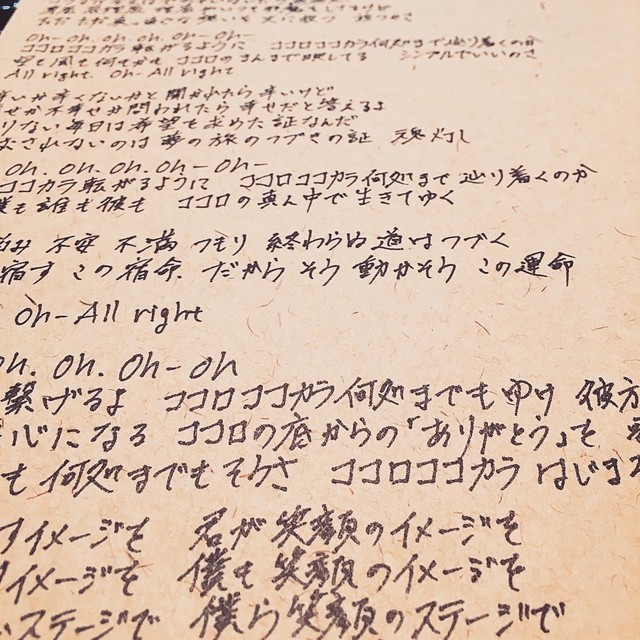 Oh- Oh- Oh- Oh- Oh- Oh-
ココロココカラ転がるように ココロココカラ何処まで辿り着くのか
空も風も何もかも ココロのまんまで映してる シンプルでいいのさ
All right. Oh- All right
辛いか辛くないかと聞かれたら辛いけど
幸せか不幸せか問われたら幸せだと答えるよ
りない毎日は希望を求めた証なんだ
されないのは夢の旅のつづきの証 灯し
Oh. Oh. Oh. Oh- Oh-
ココカラ転がるように ココロココカラ何処まで辿り着くのか
僕も誰も彼も ココロの真ん中で生きてゆく
悩み 不安 不満 つもり 終わらぬ道はつづく
宿す この宿命 だから そう 動かそう この運命
Oh- All right
Oh. Oh. Oh- Oh
繋げるよ ココロココカラ何処までもゆけ 彼方
心になる ココロの底からの「ありがとう」を
も 何処までもそうさ ココロココカラ はじま
すイメージを 君が笑顔のイメージを
イメージを 僕も笑顔のイメージを
いステージで 僕ら笑顔のステージで